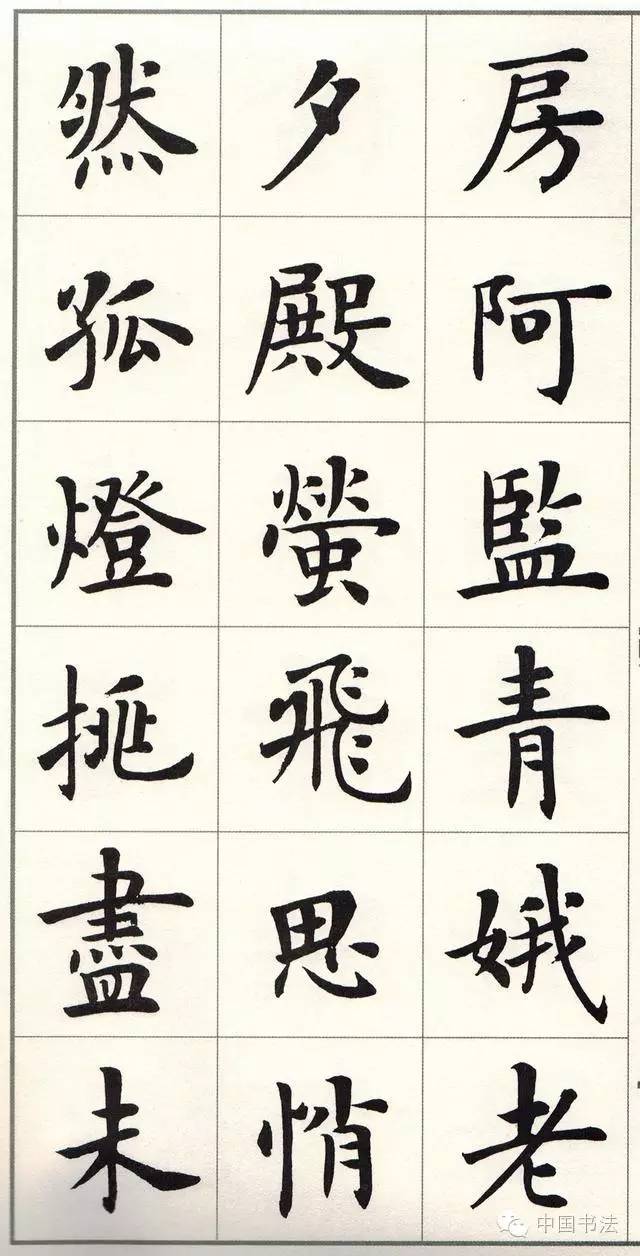 房阿監青娥老
夕殿螢飛思悄
然孤燈挑盡未
中国书法